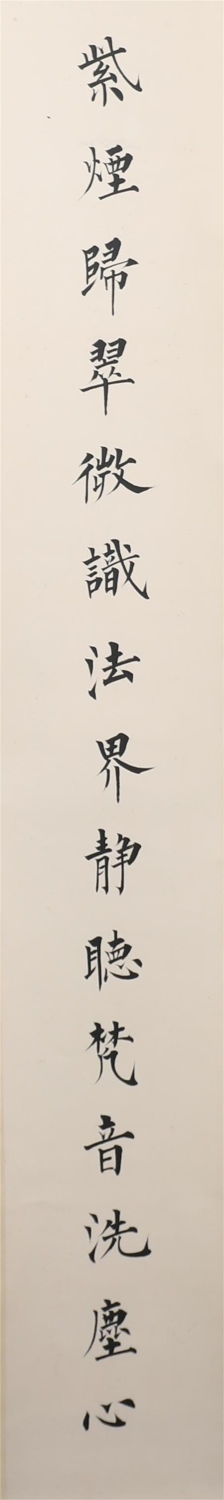 紫煙歸翠微識法界靜聽梵音洗塵心